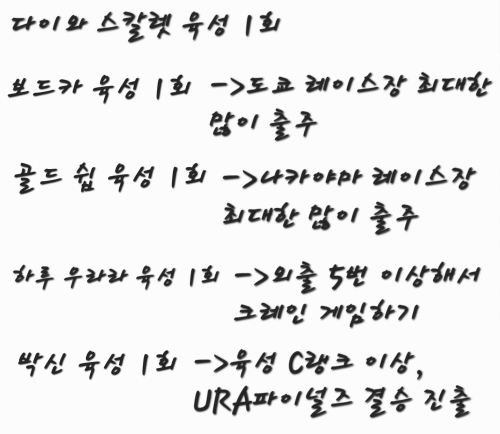 다이와 스칼렛 육성 1회
보드카 육성 1회 ->도쿄 레이스장 최대한
많이 출주
골드 쉽 육성 1회 ->나카야마 레이스장
최대한 많이 출주
하루 우라라 육성 1회 ->외출 5번 이상해서
크레인 게임하기
박신 육성 1회 ->육성 C랭크 이상,
URA파이널즈 결승 진출